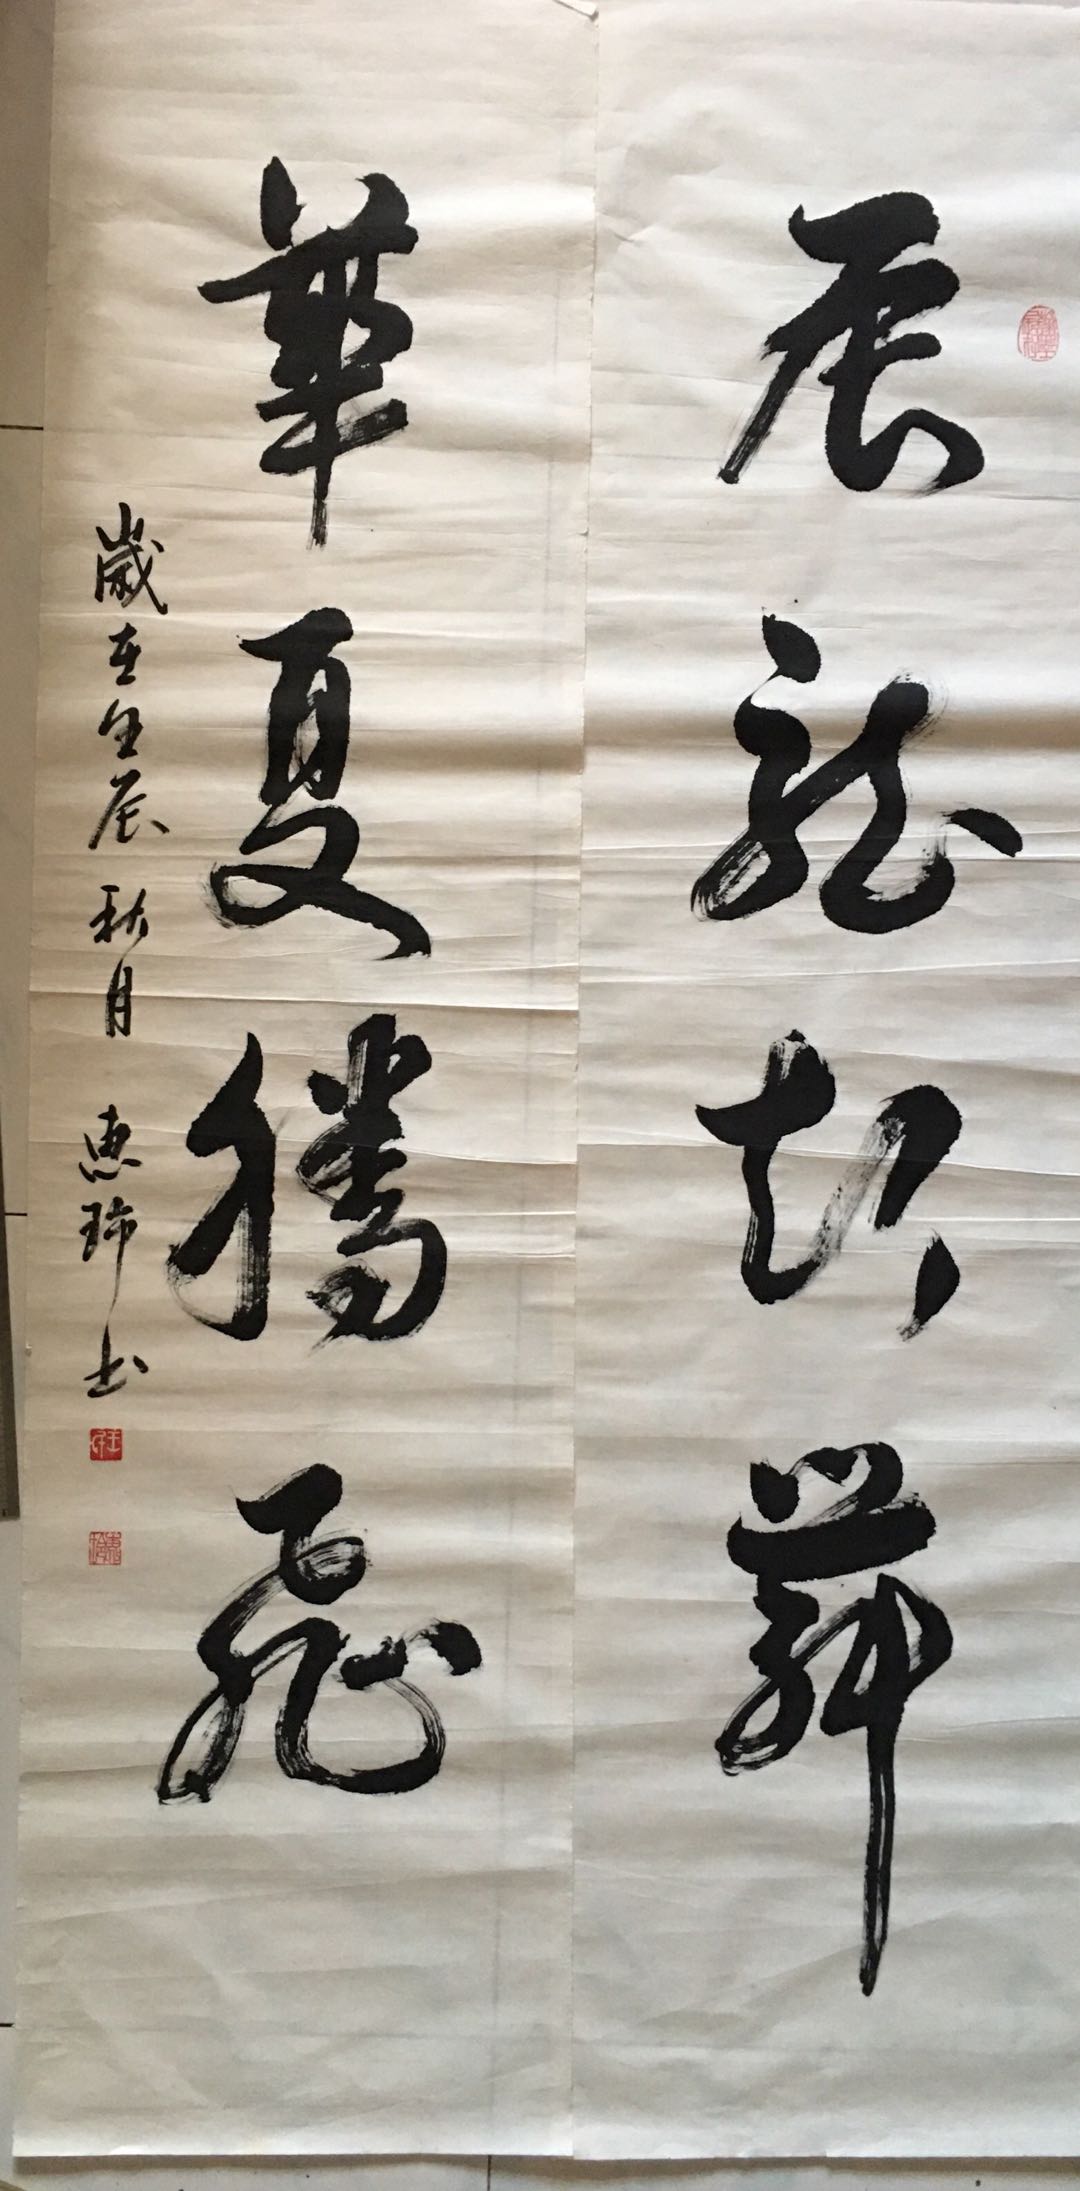 辰龍起舞
華夏騰飛
歲在壬辰秋月 惠玲书